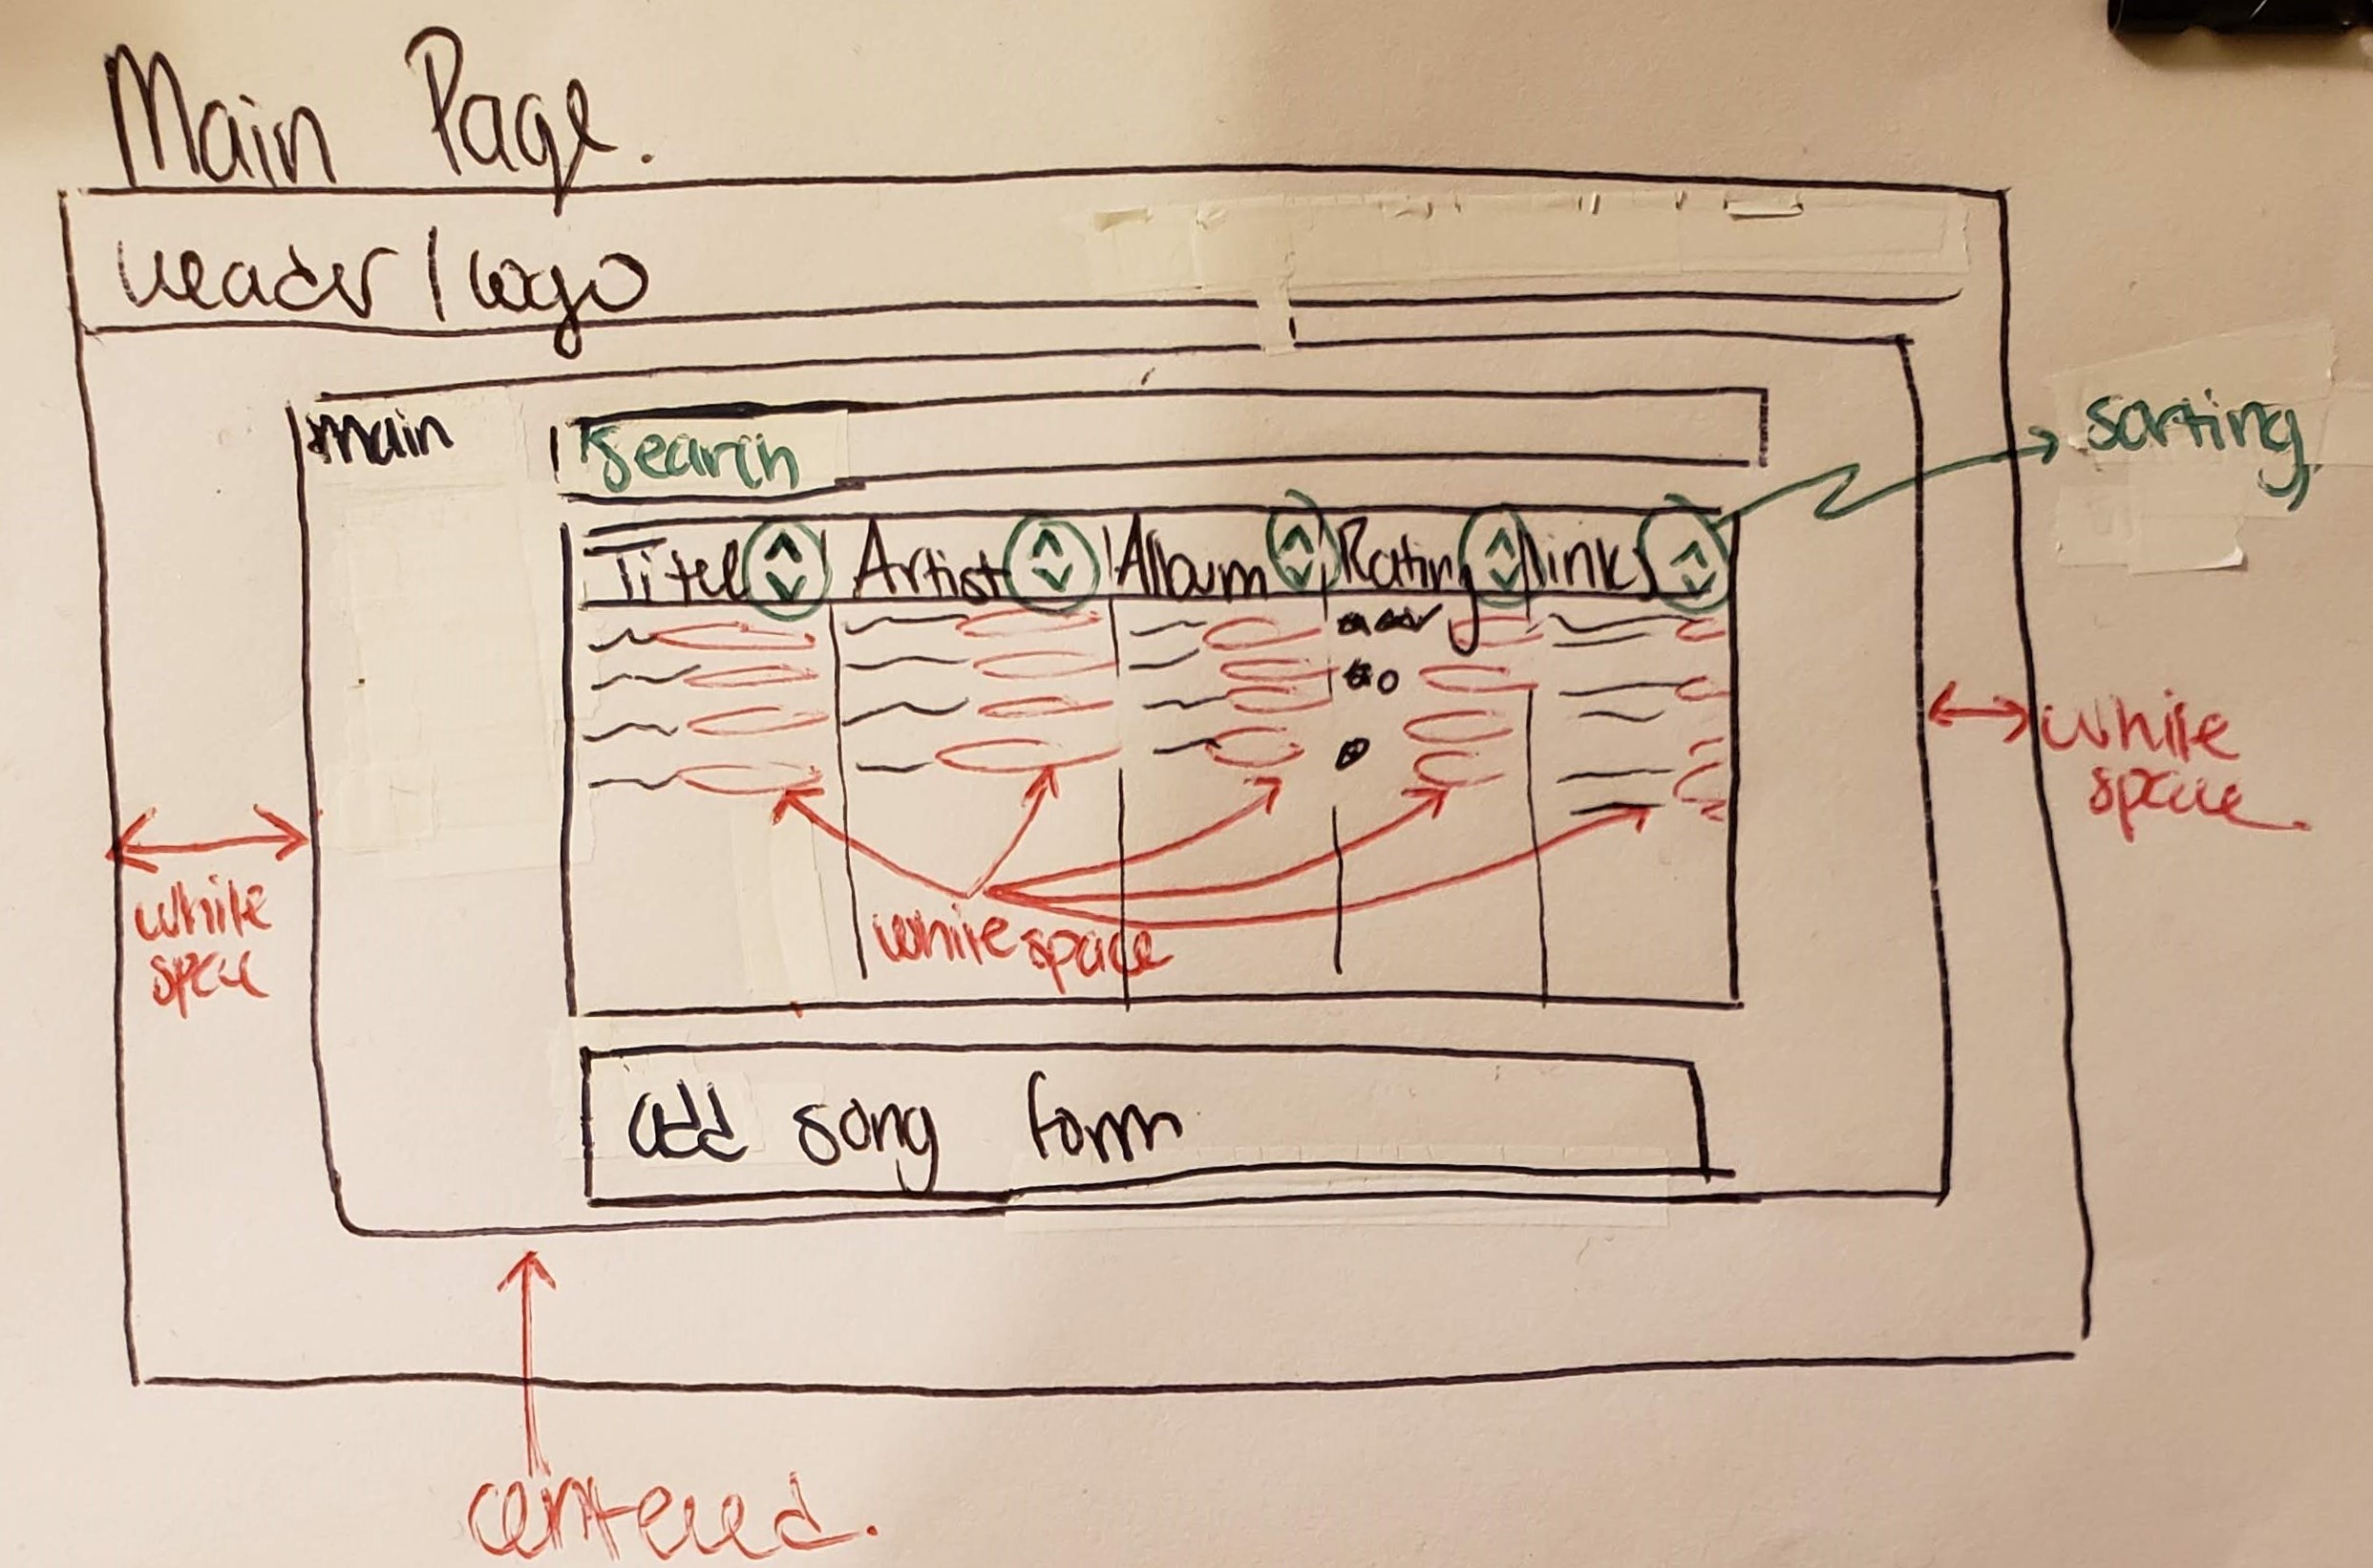 Main Page.
header / logo
main
Search
sorting
Titel Artist Album Rating links
white
space
white
space
white space
add song form
centered.